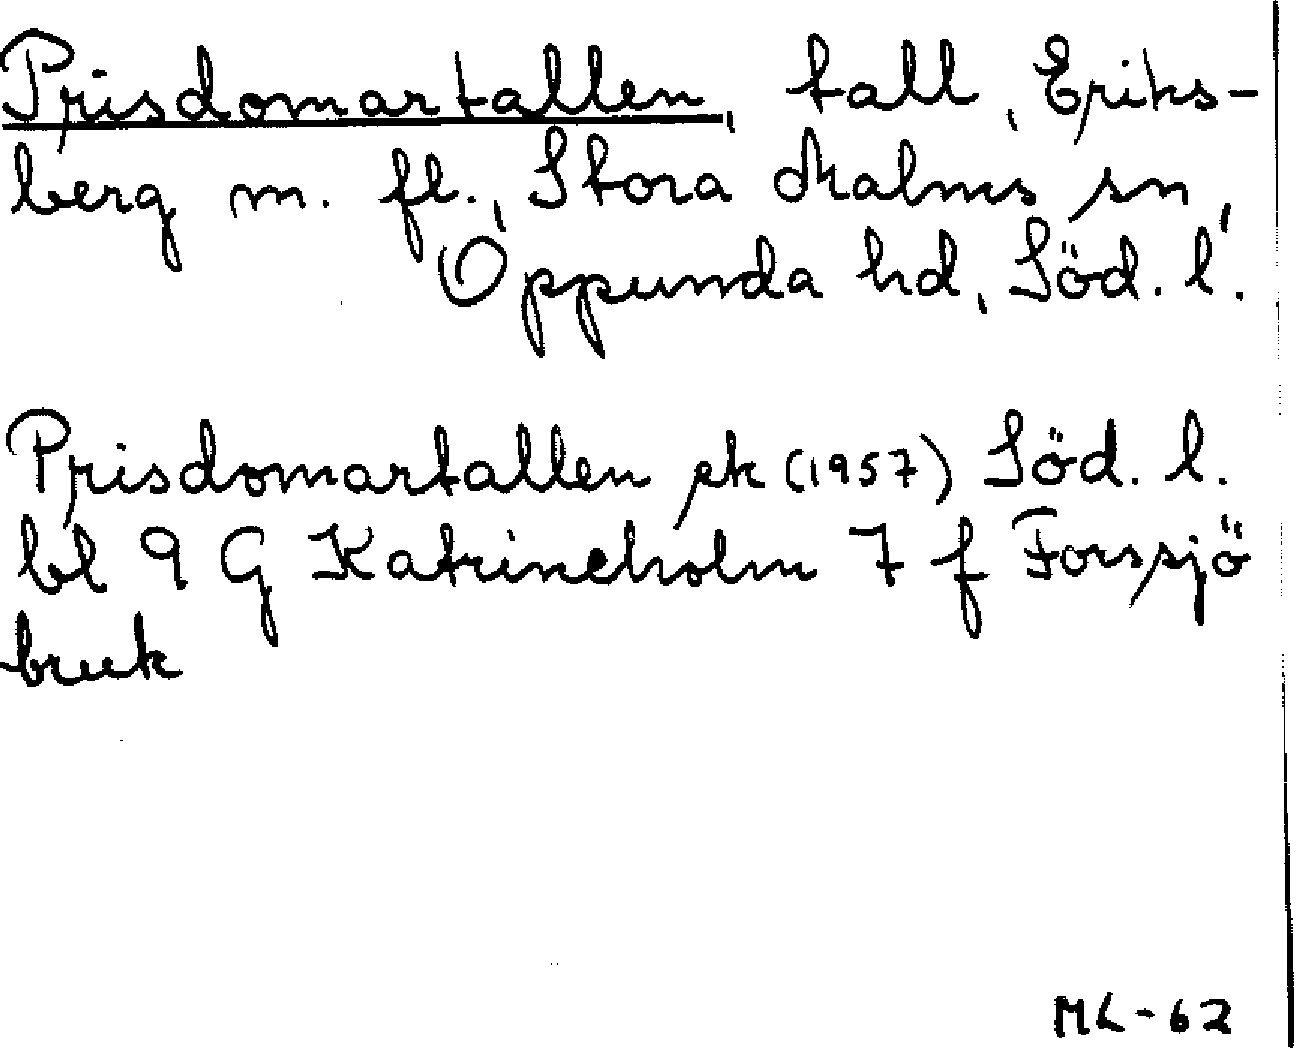 Prisdomartallen, tall, Eriks-
berg m. fl., Stora Malms sn,
Oppunda hd, Söd. l.
Prisdomartallen ek (1957) Söd. l.
bl 9 G Katrineholm 7 f Forssjö
bruk
ML-62